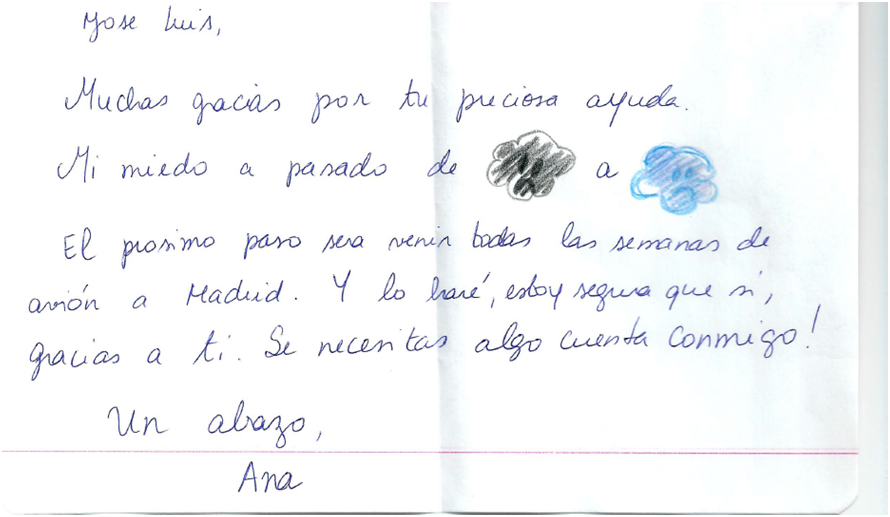 Jose Luis,
Muchas gracias por tu preciosa ayuda.
Mi miedo a pasado de a
El prosimo paso sera venir todas las semanas de
avión a Madrid. Y lo haré, estoy segura que sí,
gracias a ti. Se necesitas algo cuenta conmigo!
Un abrazo,
Ana